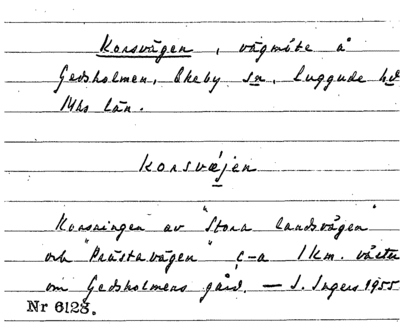 Korsvägen, vägmöte å
Gedsholmen, Ekeby sn, Luggude hd
Mhs län.
Korsvæjen
Korsningen av "Stora landsvägen"
och "Prästavägen" c-a 1 km. väster
om Gedsholmens gård. — I. Ingers 1955
Nr 6128.